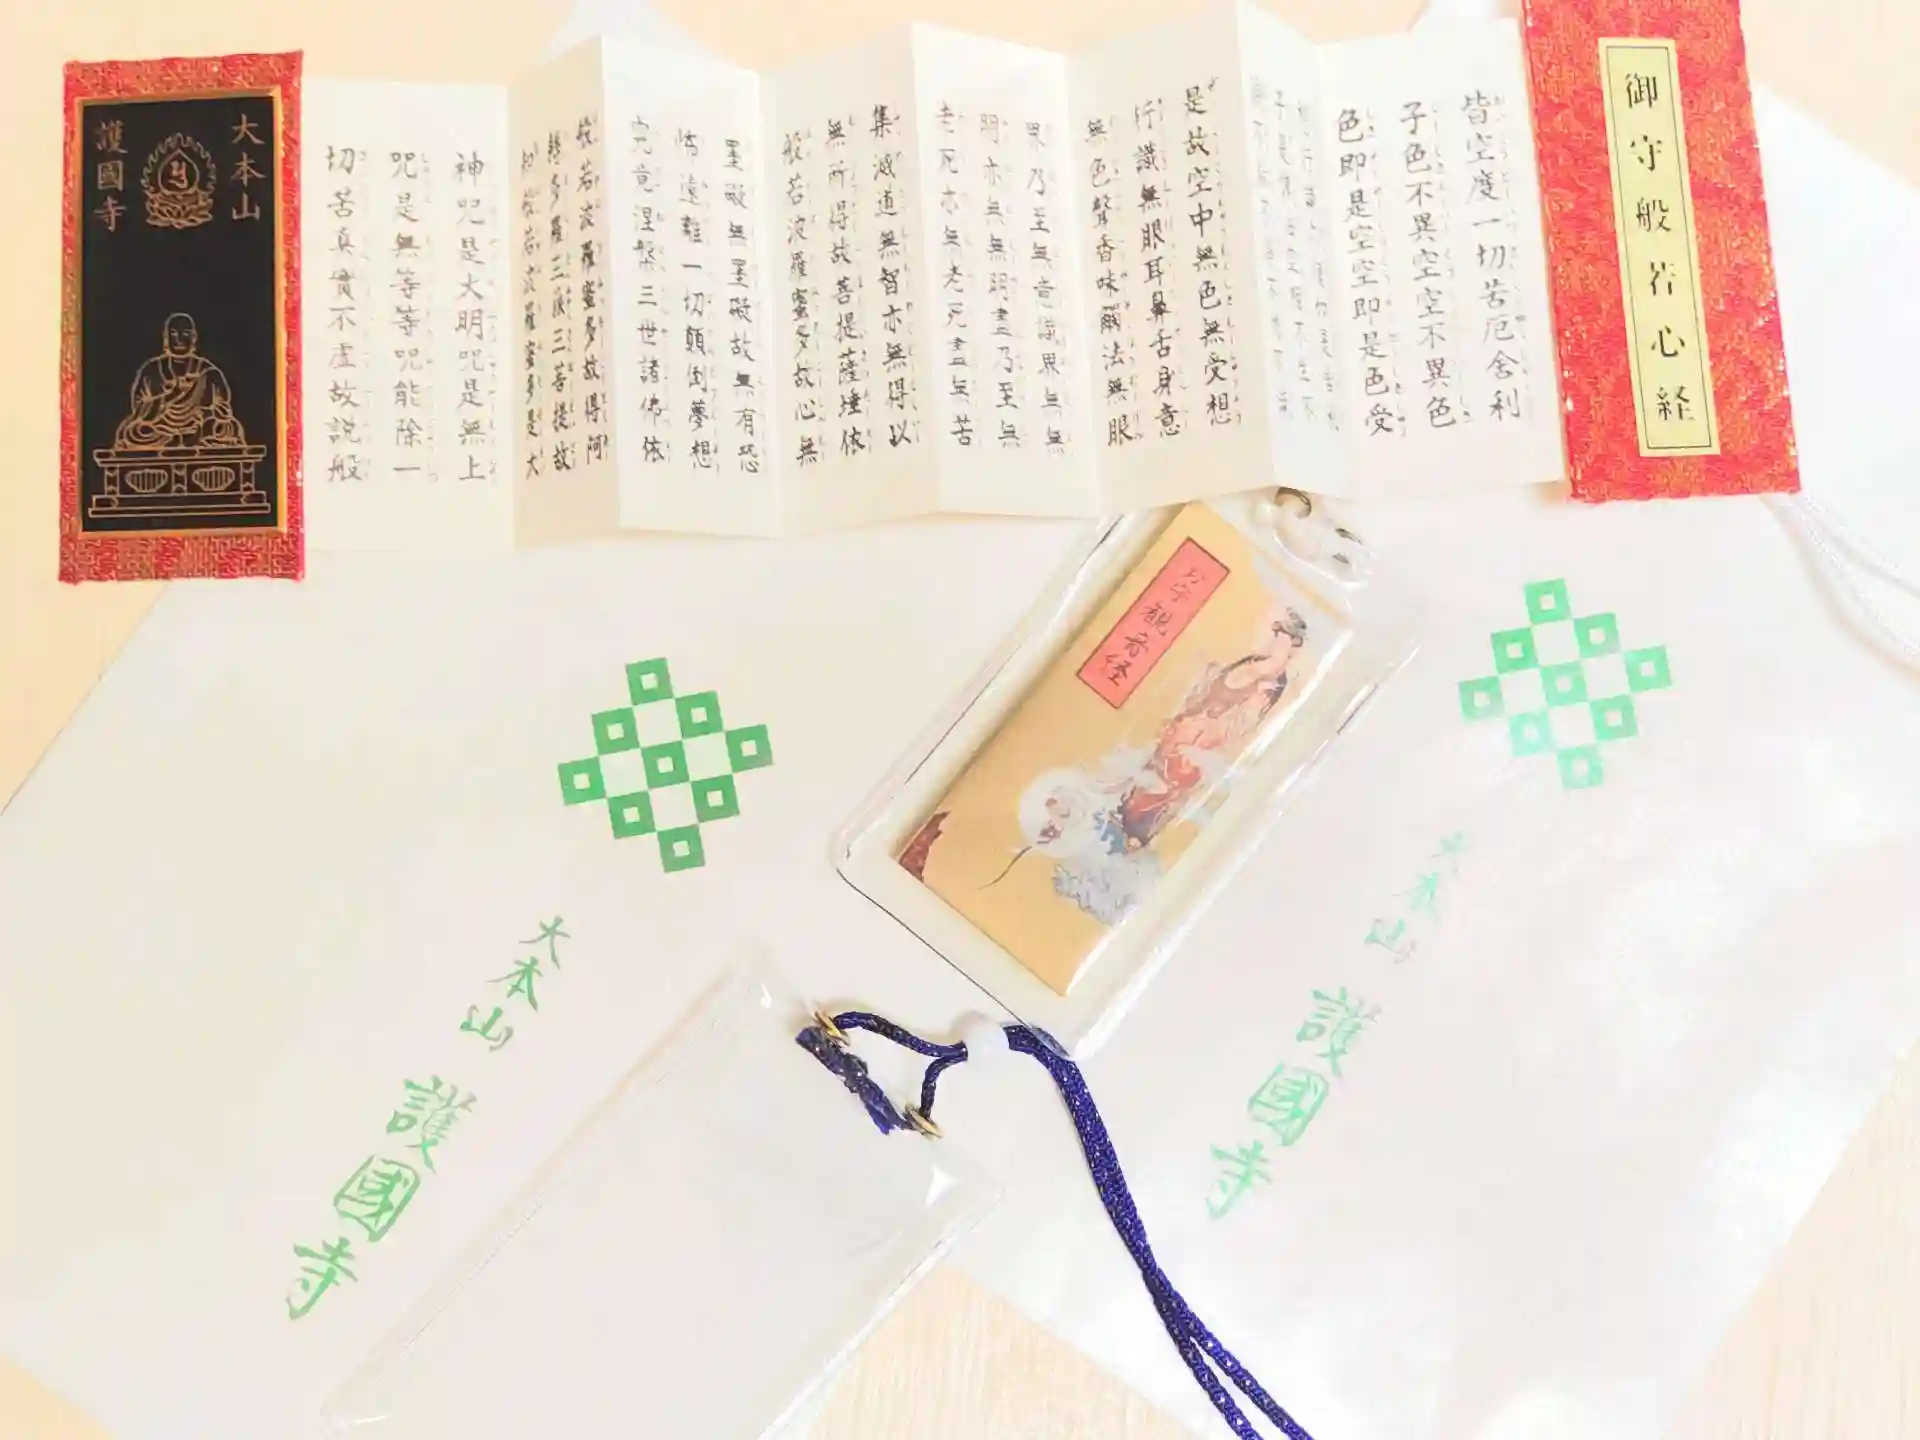 御守般若心経
皆空度一切苦厄舍利
子色不異空空不異色
色即是空空即是色受
是故空中無色無受想
行識無眼耳鼻舌身意
無色聲香味觸法無眼
界乃至無意識界無無
明亦無無明盡乃至無
老死亦無老死盡無苦
集滅道無智亦無得以
無所得故菩提薩埵依
般若波羅蜜多故心無
罣礙無罣礙故無有恐
怖遠離一切顛倒夢想
究竟涅槃三世諸佛依
般若波羅蜜多故得阿
耨多羅三藐三菩提故
知般若波羅蜜多是大
神咒是大明咒是無上
咒是無等等咒能除一
切苦真實不虚故説般
大本山
護國寺
お守観音経
大本山
護國寺
大本山
護國寺